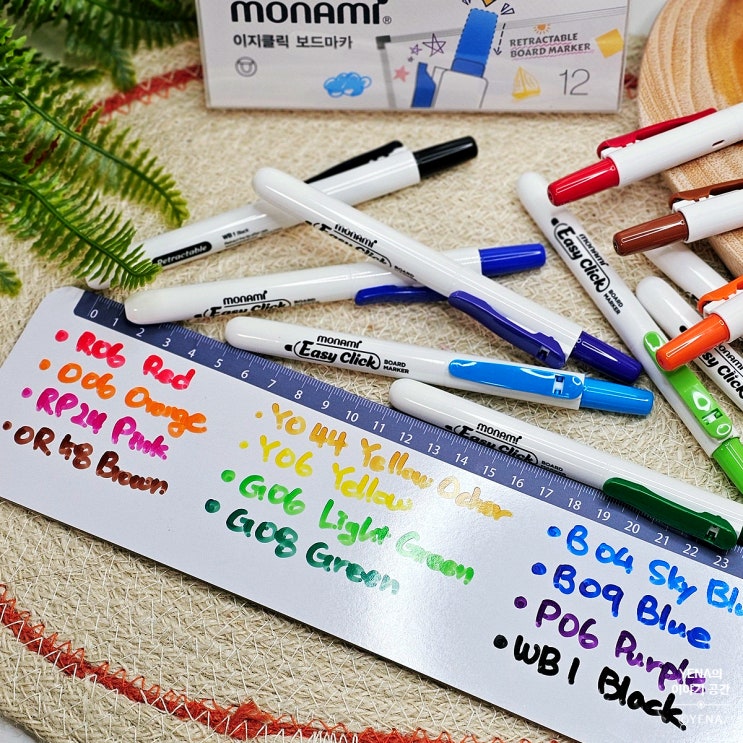 monami®
이지클릭 보드마카
RETRACTABLE
BOARD MARKER
12
WB 1 Black
Retractable
monami
Easy Click BOARD MARKER
monami
Easy Click BOARD MARKER
monami
Easy Click BOARD MARKER
monami
Easy Click BOARD MARKER
monami
Easy Click BOARD
Easy Click
0 1 2 3 4 5 6 7 8 9 10 11 12 13 14 15 16 17 18 19 20 21 22 23
• R06 Red
• O06 Orange
• RP24 Pink
• OR48 Brown
• YO44 Yellow Ocher
• Y06 Yellow
• G06 Light Green
• G08 Green
• B04 Sky Bl
• B09 Blue
• P06 Purple
• WB1 Black
YENA의
이야기 공간
BYENA